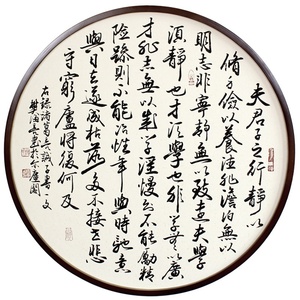 夫君子之行靜以
脩身儉以養德非澹泊無以
明志非寧靜無以致遠夫學
須靜也才須學也非學無以廣
才非志無以成學淫慢則不能勵精
險躁則不能冶性年與時馳意
與日去遂成枯落多不接世悲
守窮廬將復何及
右錄諸葛亮誡子書一文